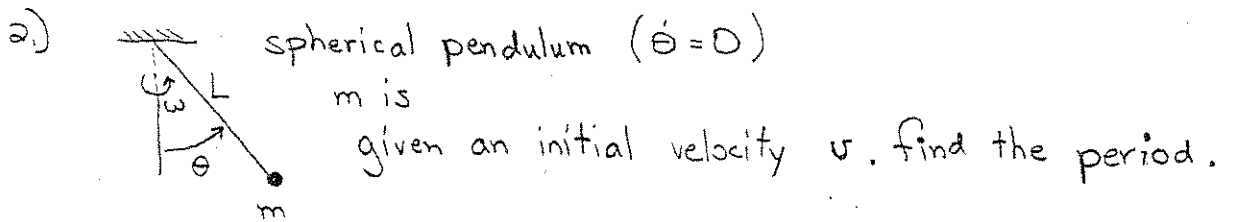 2.) spherical pendulum (θ̇ = 0)
L
ω
m is
given an initial velocity v. find the period.
θ
m